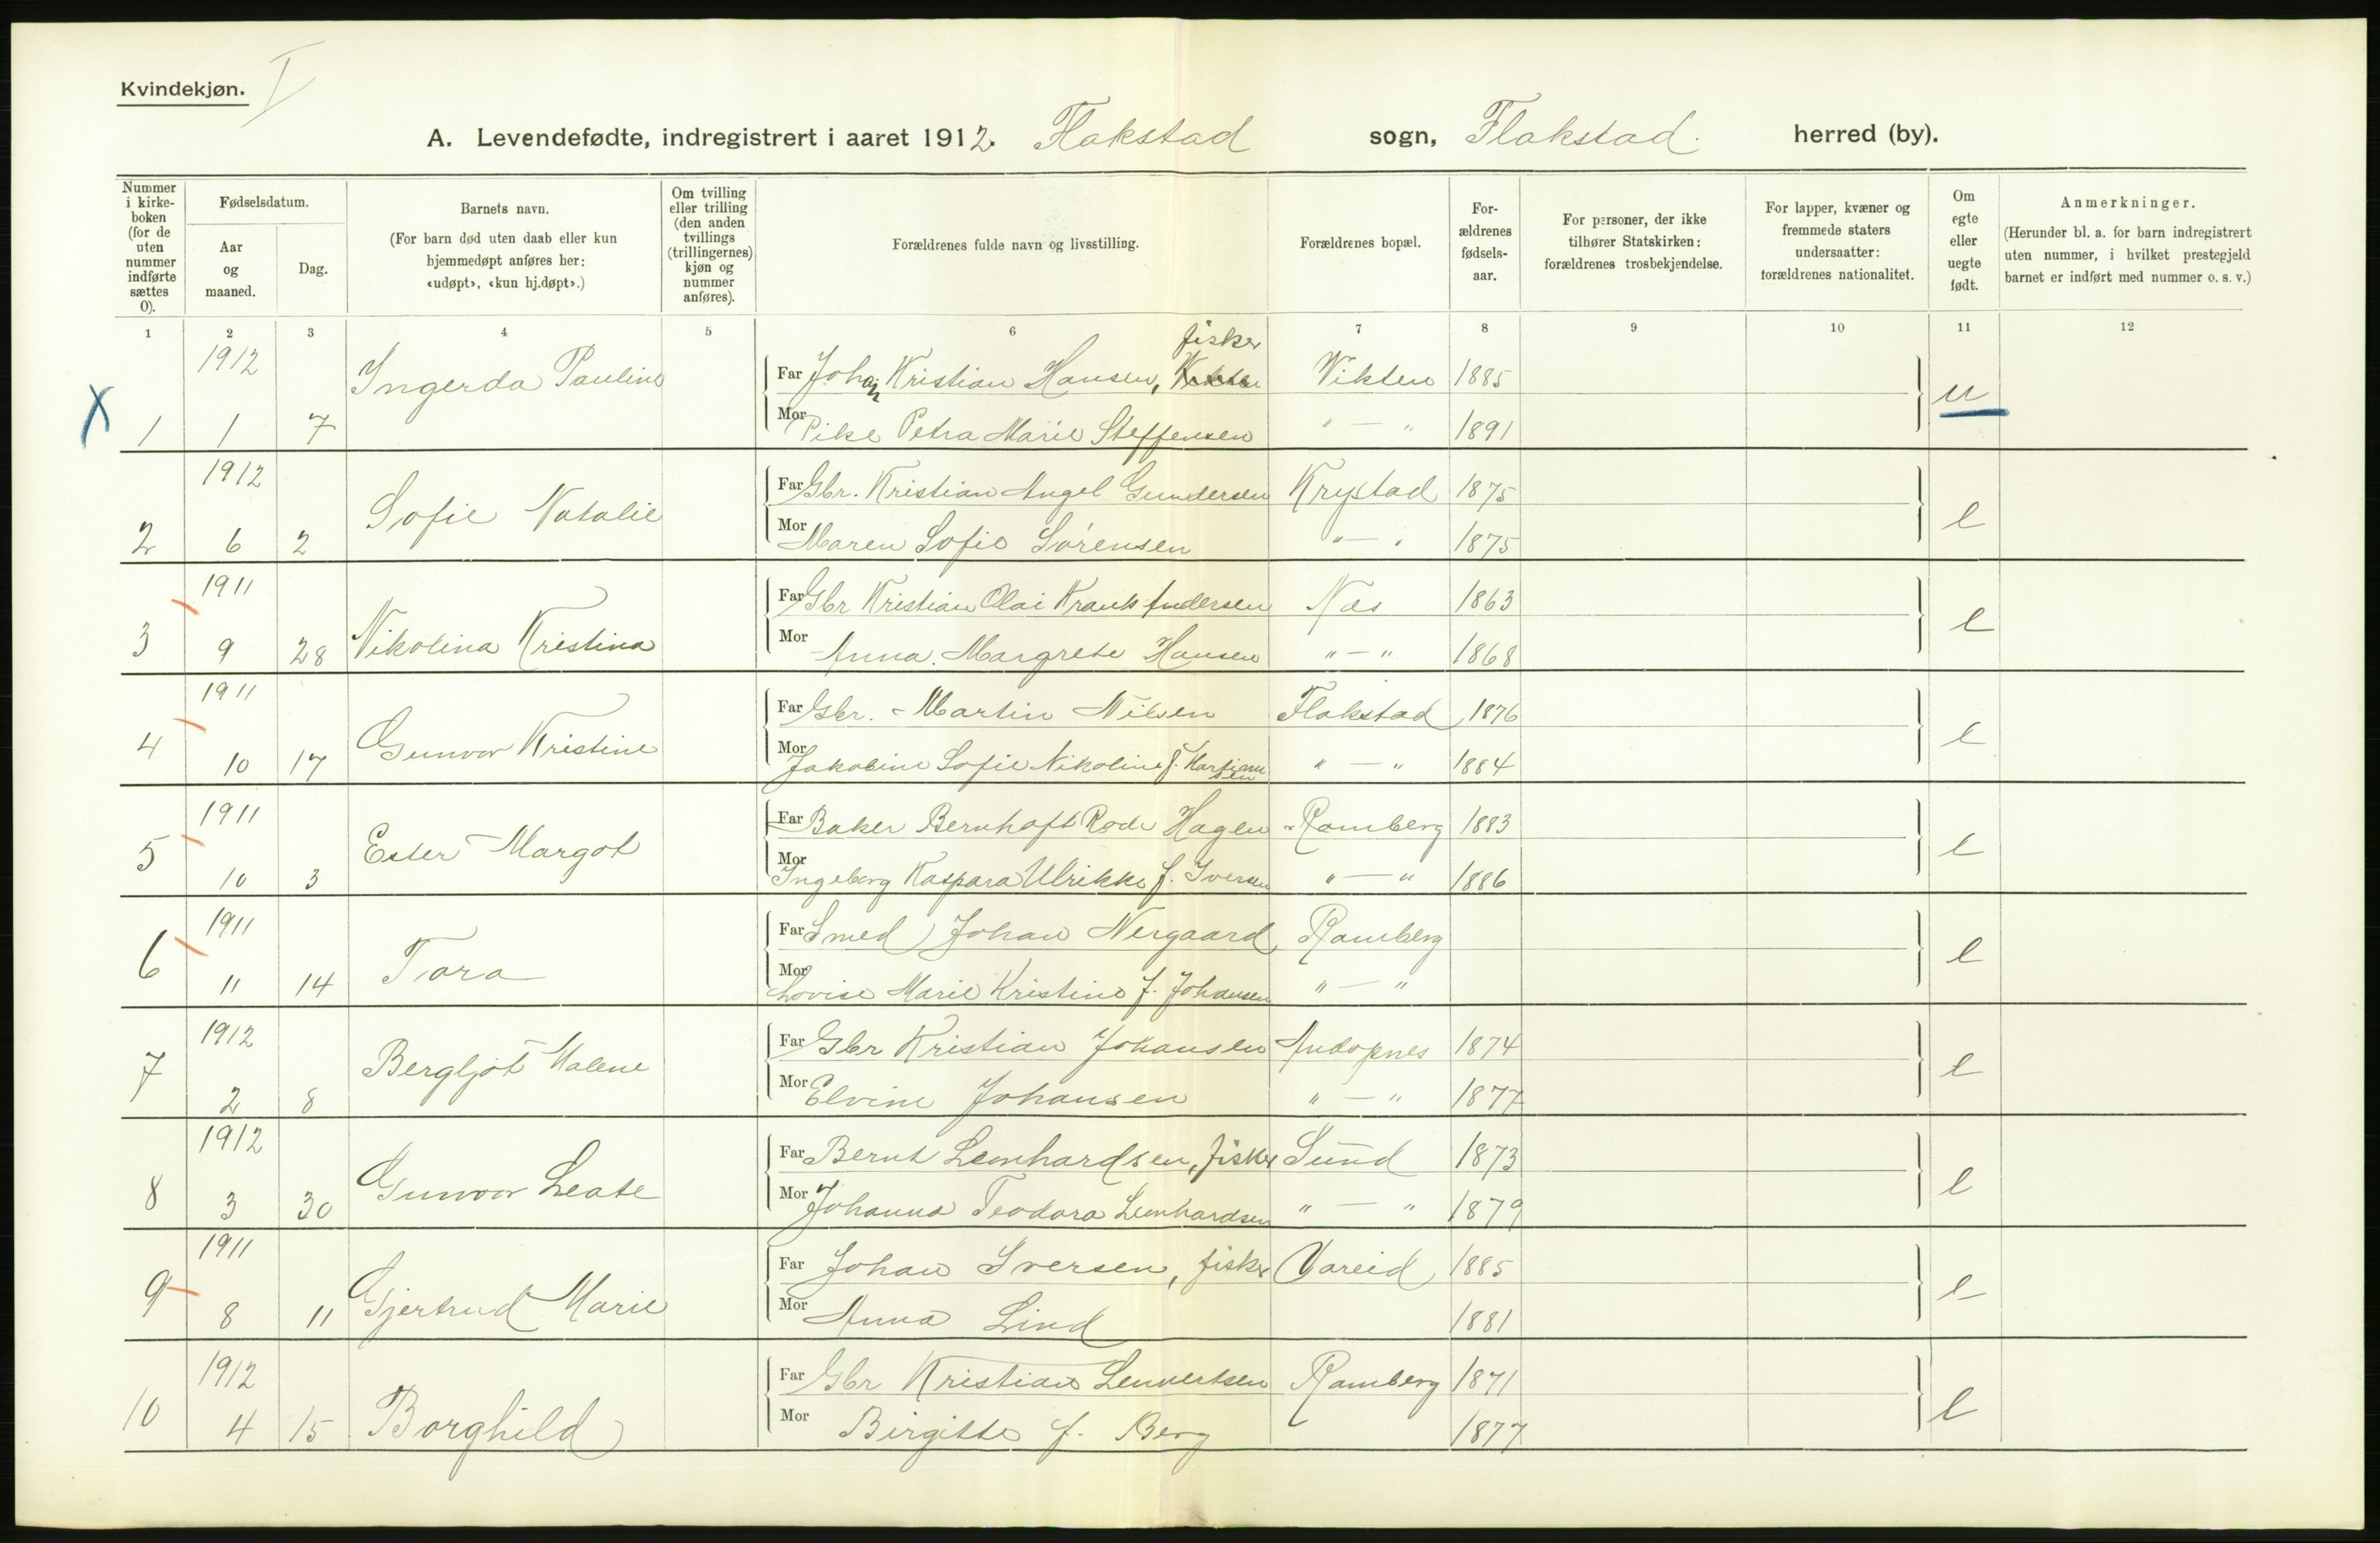 Kvindekjøn. I
A. Levendefødte, indregistrert i aaret 1912. Flakstad sogn, Flakstad. herred (by).
Nummer i kirkeboken (for de uten nummer indførte sættes 0).
Fødselsdatum.
Aar og maaned.
Dag.
Barnets navn.
(For barn død uten daab eller kun hjemmedøpt anføres her: «udøpt», «kun hj.døpt».)
Om tvilling eller trilling (den anden tvillings (trillingernes) kjøn og nummer anføres).
Forældrenes fulde navn og livsstilling.
Forældrenes bopæl.
Forældrenes fødselsaar.
For personer, der ikke tilhører Statskirken: forældrenes trosbekjendelse.
For lapper, kvæner og fremmede staters undersaatter: forældrenes nationalitet.
Om egte eller uegte født.
Anmerkninger.
(Herunder bl. a. for barn indregistrert uten nummer, i hvilket prestegjeld barnet er indført med nummer o. s. v.)
1 2 3 4 5 6 7 8 9 10 11 12
X 1 1912 1 7 Ingerda Pauline
Far Johan Kristian Hansen, fisker Vikten 1885
Mor Pike Petra Marie Steffensen " — " 1891 u
2 1912 6 2 Sofie Natalie
Far Gbr. Kristian Angel Gundersen Krystad 1875
Mor Maren Sofie Sørensen " — " 1875 e
3 1911 9 28 Nikolina Kristina
Far Gbr Kristian Olai Krants Andersen Næs 1863
Mor Anna Margrete Hansen " — " 1868 e
4 1911 10 17 Gunvor Kristine
Far Gbr. Martin Nilsen Flakstad 1876
Mor Jakobine Sofie Nikoline f. Martinussen " — " 1884 e
5 1911 10 3 Ester Margot
Far Baker Bernhoft Rode Hagen Ramberg 1883
Mor Ingeborg Kaspara Ulrikke f. Iversen " — " 1886 e
6 1911 11 14 Tora
Far Smed Johan Nergaard Ramberg
Mor Lovise Marie Kristine f. Johansen " — " e
7 1912 2 8 Bergljot Malene
Far Gbr Kristian Johansen Andopnes 1874
Mor Elvine Johansen " — " 1877 e
8 1912 3 30 Gunvor Leate
Far Bernt Leonhardsen, fisker Sund 1873
Mor Johanna Teodora Leonhardsen " — " 1879 e
9 1911 8 11 Gjertrud Marie
Far Johan Iversen, fisker Vareid 1885
Mor Anna Lind 1881 e
10 1912 4 15 Borghild
Far Gbr Kristian Lennertsen Ramberg 1871
Mor Birgitte f. Berg 1877 e